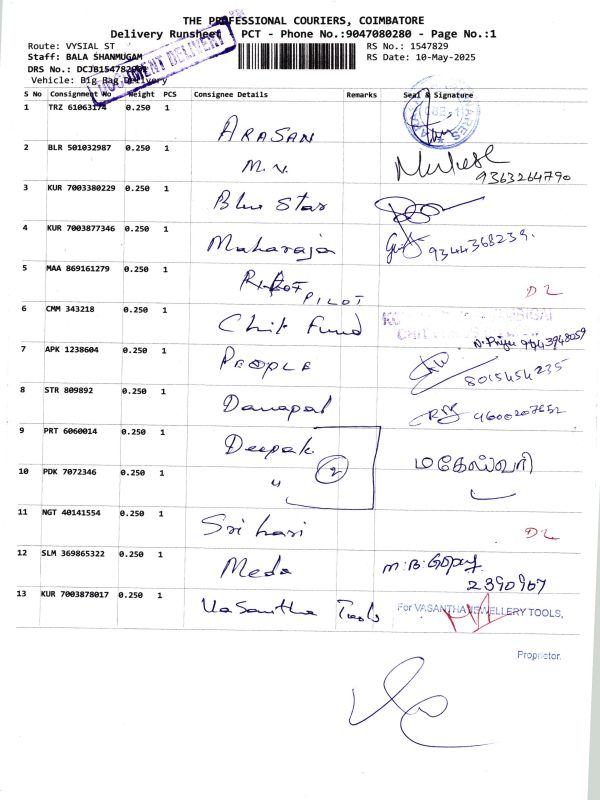 THE PROFESSIONAL COURIERS, COIMBATORE
Delivery Runsheet PCT - Phone No.:9047080280 - Page No.:1
Route: VYSIAL ST RS No.: 1547829
Staff: BALA SHANMUGAM RS Date: 10-May-2025
DRS No.:
Vehicle: Big Bag Delivery
DOCUMENT DELIVERY
S No Consignment No Weight PCS Consignee Details Remarks Seal & Signature
1 TRZ 61063174 0.250 1 ARASAN
2 BLR 501032987 0.250 1 M.N. 9363264790
3 KUR 7003380229 0.250 1 Blue Star
4 KUR 7003877346 0.250 1 Maharaja 9344368239.
5 MAA 869161279 0.250 1 PILOT DL
6 CMM 343218 0.250 1 Chit Fund
7 APK 1238604 0.250 1 PEOPLE 8015454235
8 STR 809892 0.250 1 Danapal 9600207652
9 PRT 6060014 0.250 1 Deepak மகேஸ்வரி
10 PDK 7072346 0.250 1 " 2
11 NGT 40141554 0.250 1 Sri hari DL
12 SLM 369865322 0.250 1 Meda M.B.Gopay
2390907
13 KUR 7003878017 0.250 1 Vasantha Tools For VASANTHA JEWELLERY TOOLS,
Proprietor.